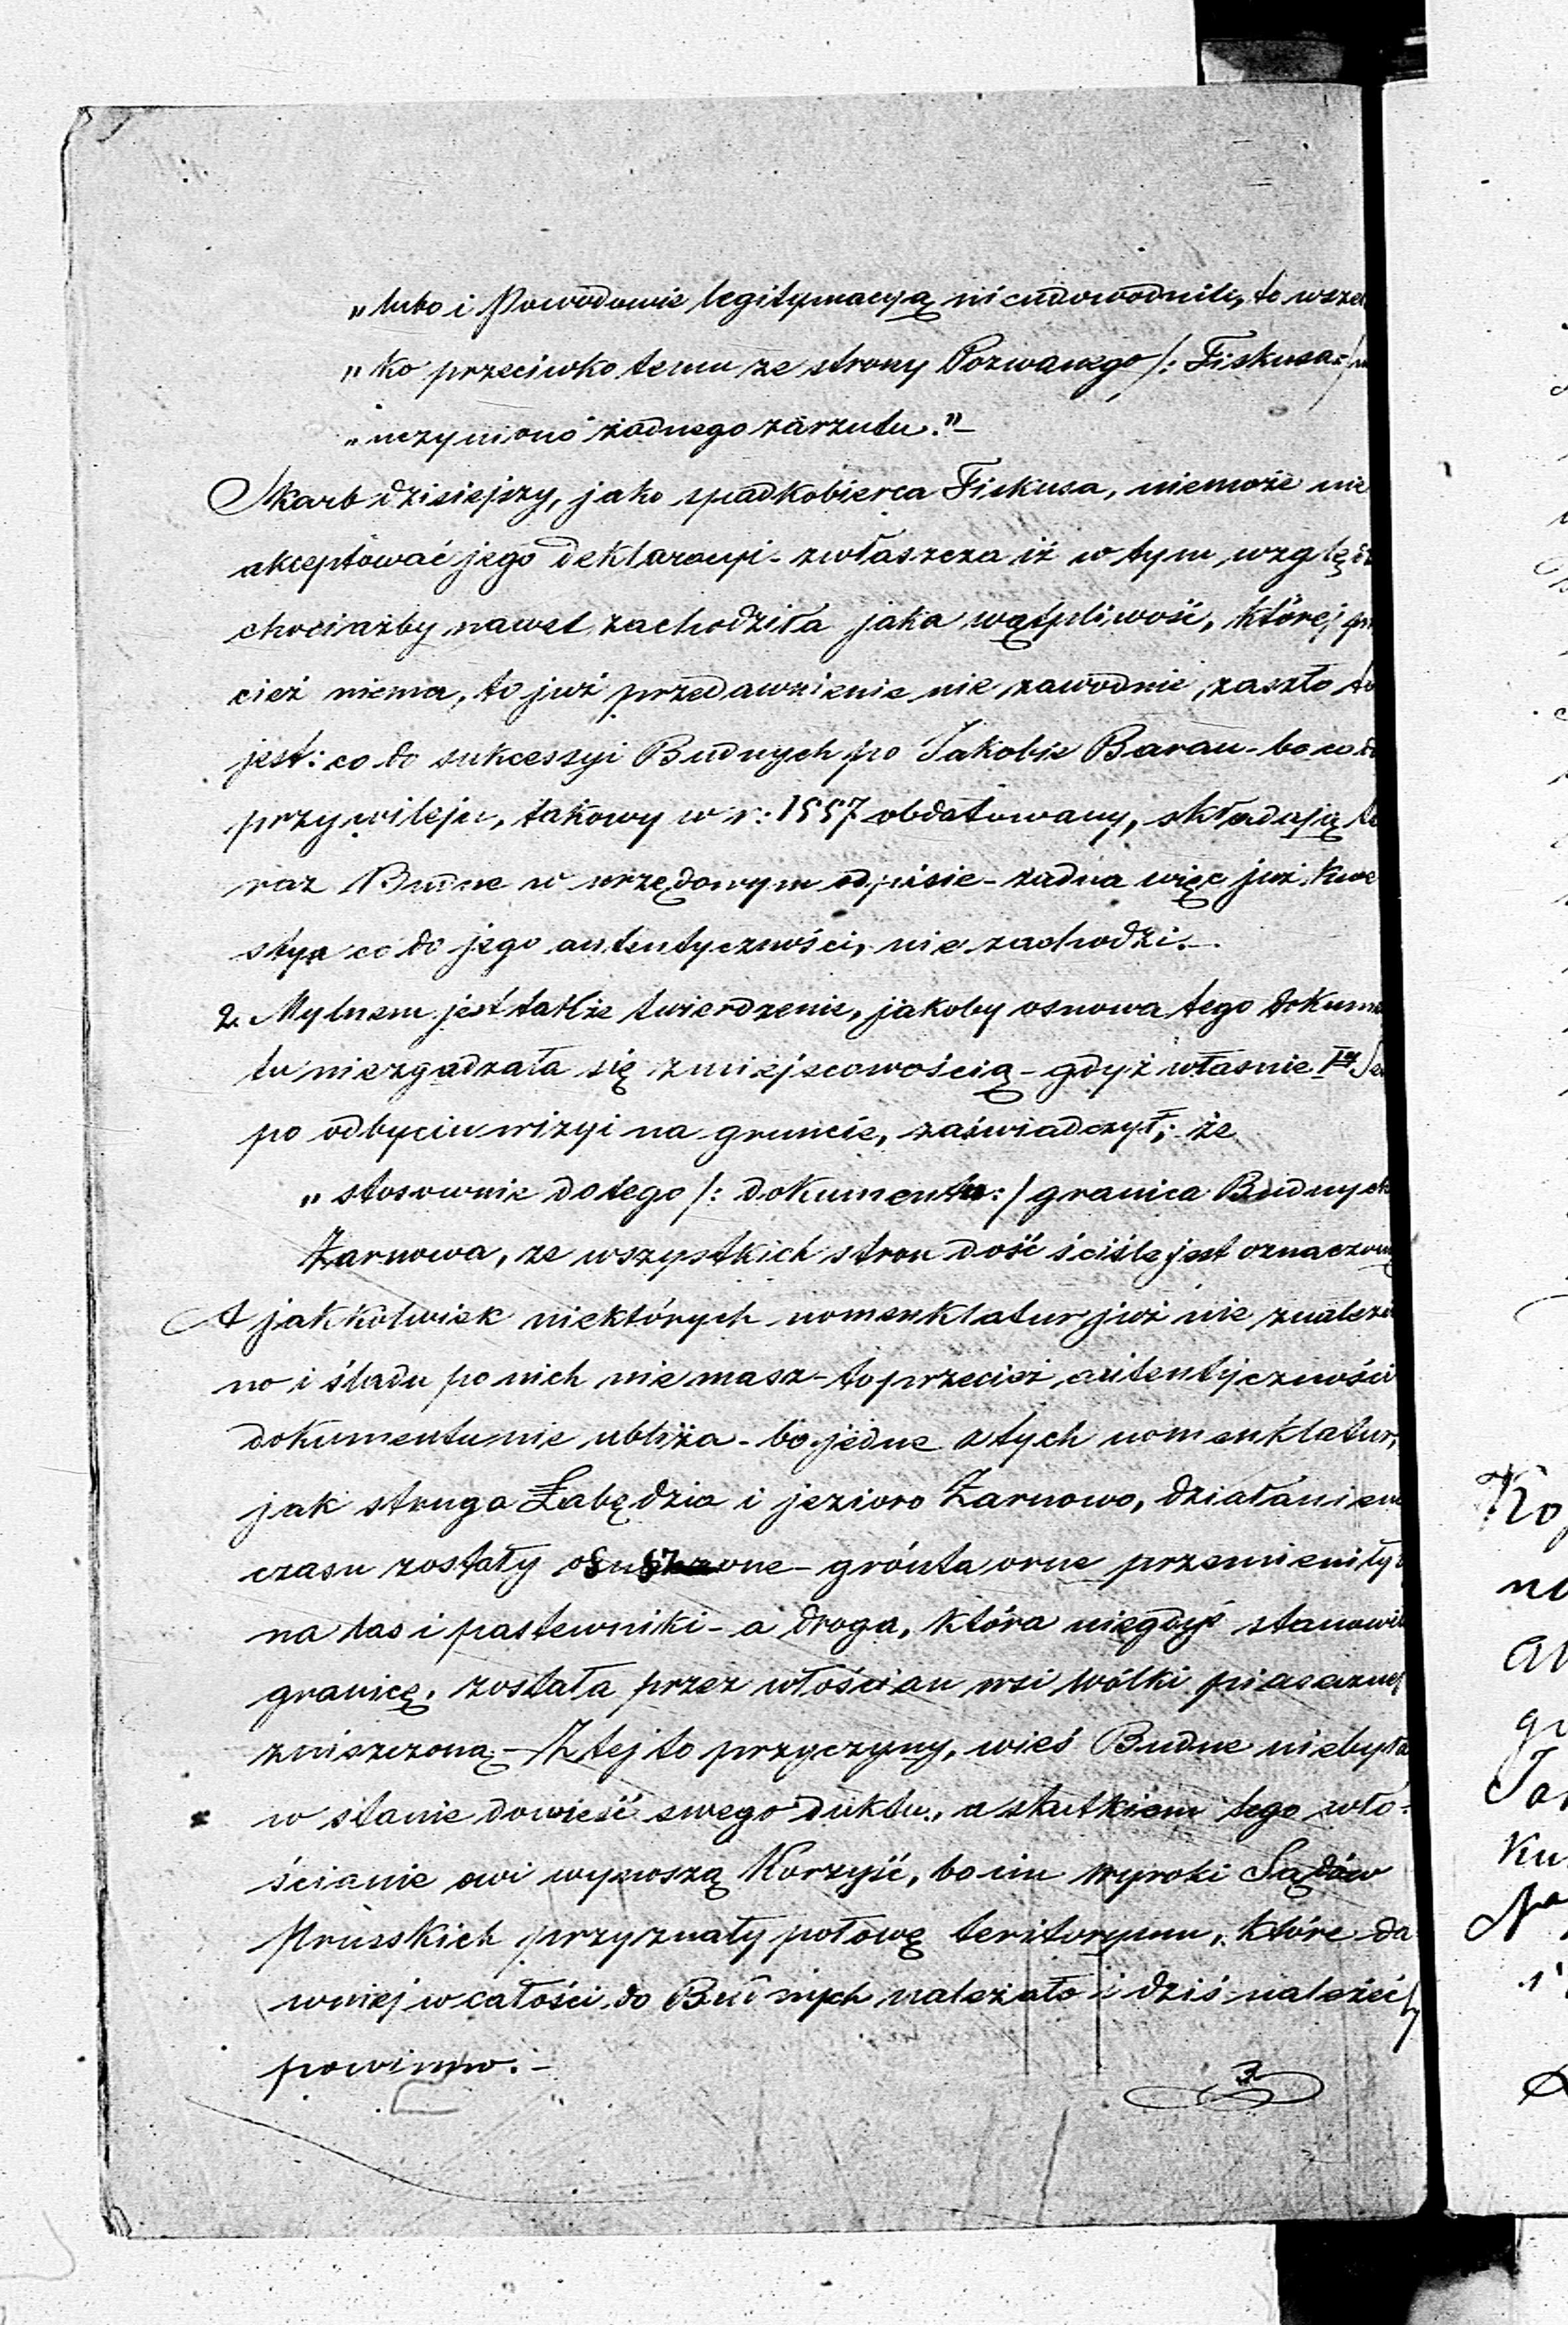 „lubo i Powodowie legitymacyą nieudowodnili, to wsze
„ko przeciwko temu ze strony Pozwanego /: Fiskusa :/
„uczyniono żadnego zarzutu."—
Skarb dzisiejszy, jako spadkobierca Fiskusa, niemoże nie
akceptować jego deklaracyi - zwłaszcza iż w tym wzglę
chociażby nawet zachodziła jaka wątpliwość, której
cież niema, to już przedawnienie nie zawodnie zaszło to
jest: co do sukcessyi Budnych po Jakobie Baran - bo co do
przywileju, takowy w r: 1557 obdatowany, składają te
raz Budne w urzędowym odpisie - żadna więc już kwe
stya co do jego autentyczności, nie zachodzi.—
2. Mylnem jest także twierdzenie, jakoby osnowa tego dokum
tu niezgadzała się z miejscowością - gdyż własnie
po odbyciu wizyi na gruncie, zaświadczył; że
„stosownie do tego /: dokumentu :/ granica Budnych
Żarnowa, ze wszystkich stron dość ściśle jest oznaczoną
A jakkolwiek niektórych nomenklatur już nie znalezi
no i śladu po nich nie masz - to przecież autentyczności
dokumentu nie ubliża - bo jedne z tych nomenklatur,
jak struga Łabędzia i jezioro Żarnowo, działaniem
czasu zostały osuszone - grónta orne przemieniły
na las i pastewniki - a droga, która niegdyś stanowi
granicę, została przez włościan wsi Wólki piaseczne
zniszczoną - Z tej to przyczyny, wieś Budne niebyła
w stanie dowieść swego duktu, a skutkiem tego wło-
ścianie owi wynoszą Korzyść, bo im wyroki Sądów
Prusskich przyznały połowę teritoryum, które da
wniej w całości do Budnych należało i dziś należeć by
powinno.—
3
Ko
no
gr
Ja
Ku